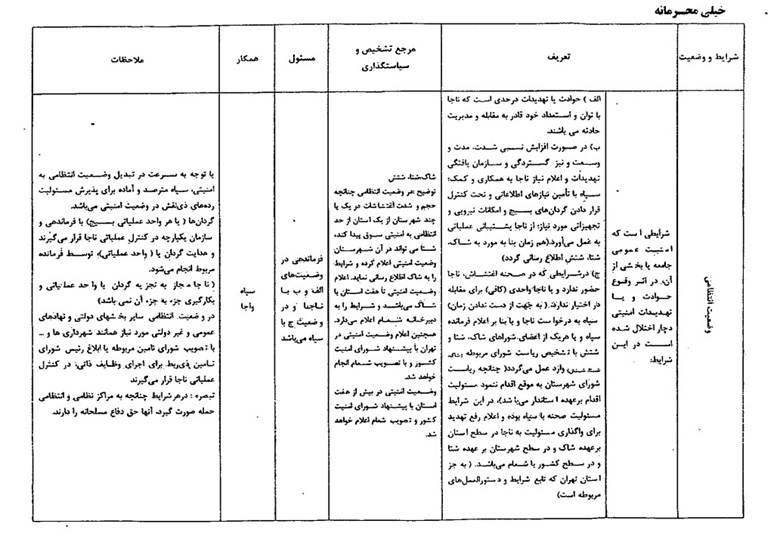 خیلی محـرمانه
شرایط و وضعیت
تعریف
مرجع تشخیص و
سیاستگذاری
مسئول
همکار
ملاحظات
وضعیت انتظامی
شرایطی است که
امنیت عمومی
جامعه یا بخشی از
آن، در اثر وقوع
حوادث و یا
تهدیدات امنیتی
دچار اختلال شده
است در این
شرایط:
الف ) حوادث یا تهدیدات درحدی است که ناجا
با توان و استعداد خود قادر به مقابله و مدیریت
حادثه می باشند.
ب) در صورت افزایش نسبی شدت، مدت و
وسعت و نیز گستردگی و سازمان یافتگی
تهدیدات و اعلام نیاز ناجا به همکاری و کمک؛
سپاه با تأمین نیازهای اطلاعاتی و تحت کنترل
قرار دادن گردان‌های بسیج و امکانات نیرویی و
تجهیزاتی مورد نیاز؛ از ناجا پشتیبانی عملیاتی
به عمل می‌آورد.(هم زمان بنا به مورد به شاک،
شتا، شتش اطلاع رسانی گردد)
ج) درشرایطی که در صحنه اغتشاش، ناجا
حضور ندارد و یا ناجا واحدی (کافی) برای مقابله
در اختیار ندارد. ( به جهت از دست ندادن زمان)
سپاه به درخواست ناجا و یا بنا بر اعلام فرمانده
سپاه و یا هریک از اعضای شوراهای شاک، شتا و
شتش با تشخیص ریاست شورای مربوطه
وارد عمل می‌گردد( چنانچه ریاست
شورای شهرستان به موقع اقدام ننمود مسئولیت
اقدام برعهده استاندار می‌باشد)، در این شرایط
مسئولیت صحنه با سپاه بوده و اعلام رفع تهدید
برای واگذاری مسئولیت به ناجا در سطح استان
برعهده شاک و در سطح شهرستان بر عهده شتا
و در سطح کشور با شعام می‌باشد. ( به جز
استان تهران که تابع شرایط و دستورالعمل‌های
مربوطه است)
شاک،شتا، شتش
توضیح :در وضعیت انتظامی چنانچه
حجم و شدت اغتشاشات در یک یا
چند شهرستان از یک استان از حد
انتظامی به امنیتی سوق پیدا کند،
شتا می تواند در آن شهرستان
وضعیت امنیتی اعلام کرده و شرایط
را به شاک اطلاع رسانی نماید. اعلام
وضعیت امنیتی تا هفت استان با
شاک می‌باشد و شرایط را به
دبیرخانه شعام اعلام می‌دارد.
همچنین اعلام وضعیت امنیتی در
تهران با پیشنهاد شورای امنیت
کشور و با تصویب شعام انجام
خواهد شد.
وضعیت امنیتی در بیش از هفت
استان با پیشنهاد شورای امنیت
کشور و تصویب شعام اعلام خواهد
شد.
فرماندهی در
وضعیت‌های
الف و ب با
ناجا و در
وضعیت ج با
سپاه می‌باشد
سپاه
واجا
با توجه به سرعت در تبدیل وضعیت انتظامی به
امنیتی، سپاه مترصد و آماده برای پذیرش مسئولیت
رده‌های ذی‌نقش در وضعیت امنیتی می‌باشد.
گردان‌ها ( یا هر واحد عملیاتی بسیج) با فرماندهی و
سازمان یکپارچه در کنترل عملیاتی ناجا قرار می‌گیرند
و هدایت گردان یا ( واحد عملیاتی)، توسط فرمانده
مربوط انجام می‌شود.
( ناجا مجاز به تجزیه گردان یا واحد عملیاتی و
بکارگیری جزء به جزء آن نمی باشد)
در وضعیت انتظامی سایر بخشهای دولتی و نهادهای
عمومی و غیر دولتی مورد نیاز همانند شهرداری ها و ـ
با تصویب شورای تامین مربوطه با ابلاغ رئیس شورای
تامین ذی‌ربط برای اجرای وظایف ذاتی، در کنترل
عملیاتی ناجا قرار می‌گیرند
تبصره : درهر شرایط چنانچه به مراکز نظامی و انتظامی
حمله صورت گیرد، آنها حق دفاع مسلحانه را دارند.